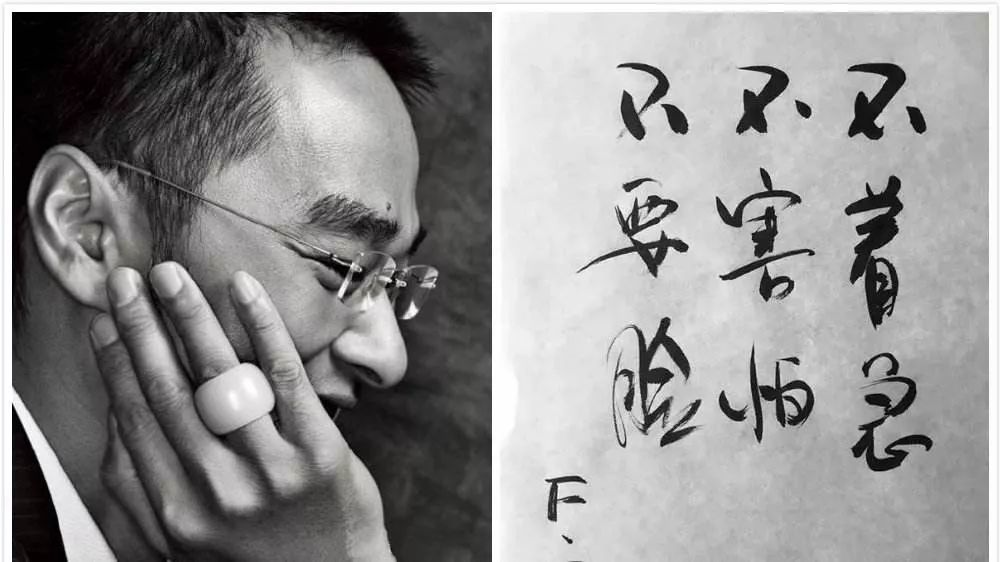 不着急
不害怕
不要脸
F.